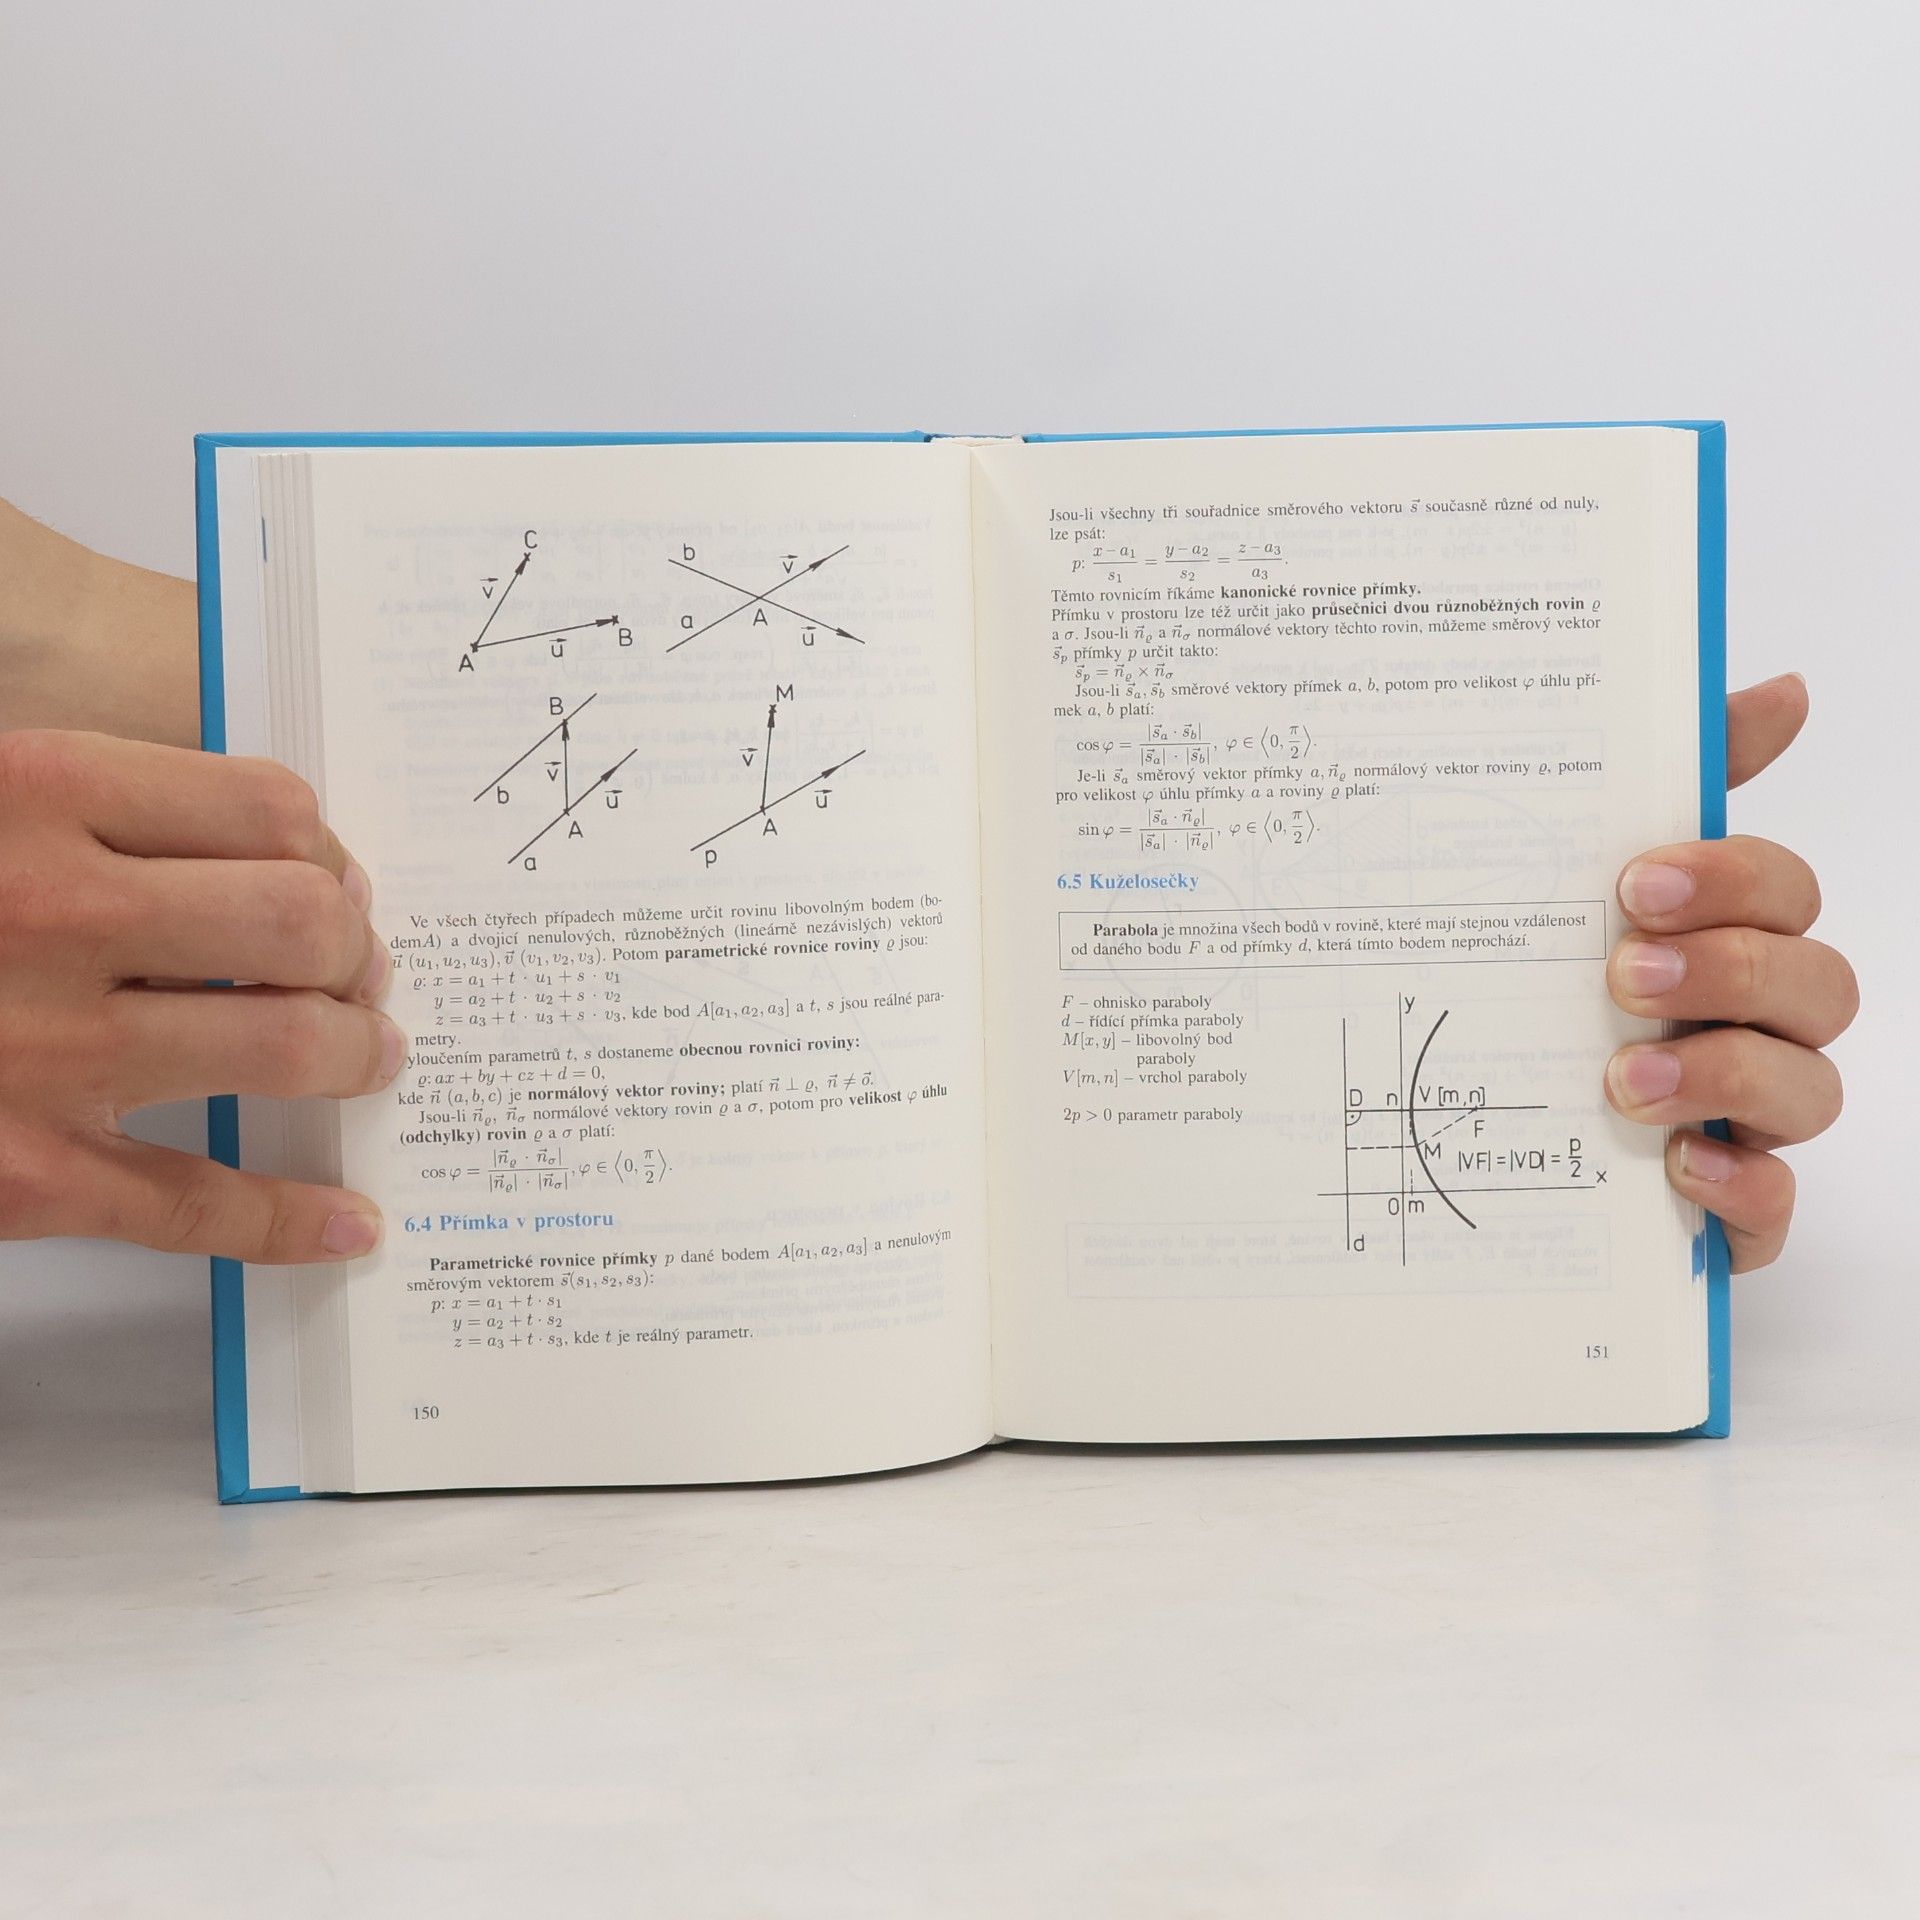 C
v⃗
A
u⃗
B
b
v⃗
a
A
u⃗
B
v⃗
b
u⃗
A
a
M
v⃗
u⃗
A
p
Ve všech čtyřech případech můžeme určit rovinu libovolným bodem (bo-
dem A) a dvojicí nenulových, různoběžných (lineárně nezávislých) vektorů
u⃗ (u₁, u₂, u₃), v⃗ (v₁, v₂, v₃). Potom parametrické rovnice roviny ϱ jsou:
ϱ: x = a₁ + t · u₁ + s · v₁
y = a₂ + t · u₂ + s · v₂
z = a₃ + t · u₃ + s · v₃, kde bod A[a₁, a₂, a₃] a t, s jsou reálné para-
metry.
yloučením parametrů t, s dostaneme obecnou rovnici roviny:
ϱ: ax + by + cz + d = 0,
kde n⃗ (a, b, c) je normálový vektor roviny; platí n⃗ ⊥ ϱ, n⃗ ≠ o⃗.
Jsou-li n⃗ϱ, n⃗σ normálové vektory rovin ϱ a σ, potom pro velikost φ úhlu
(odchylky) rovin ϱ a σ platí:
cos φ = |n⃗ϱ · n⃗σ| / |n⃗ϱ| · |n⃗σ|, φ ∈ ⟨0, π/2⟩.
6.4 Přímka v prostoru
Parametrické rovnice přímky p dané bodem A[a₁, a₂, a₃] a nenulovým
směrovým vektorem s⃗(s₁, s₂, s₃):
p: x = a₁ + t · s₁
y = a₂ + t · s₂
z = a₃ + t · s₃, kde t je reálný parametr.
150
Jsou-li všechny tři souřadnice směrového vektoru s⃗ současně různé od nuly,
lze psát:
p: x − a₁ / s₁ = y − a₂ / s₂ = z − a₃ / a₃.
Těmto rovnicím říkáme kanonické rovnice přímky.
Přímku v prostoru lze též určit jako průsečnici dvou různoběžných rovin ϱ
a σ. Jsou-li n⃗ϱ a n⃗σ normálové vektory těchto rovin, můžeme směrový vektor
s⃗p přímky p určit takto:
s⃗p = n⃗ϱ × n⃗σ
Jsou-li s⃗a, s⃗b směrové vektory přímek a, b, potom pro velikost φ úhlu pří-
mek a, b platí:
cos φ = |s⃗a · s⃗b| / |s⃗a| · |s⃗b|, φ ∈ ⟨0, π/2⟩.
Je-li s⃗a směrový vektor přímky a, n⃗ϱ normálový vektor roviny ϱ, potom
pro velikost φ úhlu přímky a a roviny ϱ platí:
sin φ = |s⃗a · n⃗ϱ| / |s⃗a| · |n⃗ϱ|, φ ∈ ⟨0, π/2⟩.
6.5 Kuželosečky
Parabola je množina všech bodů v rovině, které mají stejnou vzdálenost
od daného bodu F a od přímky d, která tímto bodem neprochází.
F – ohnisko paraboly
d – řídící přímka paraboly
M[x, y] – libovolný bod
paraboly
V[m, n] – vrchol paraboly
2p > 0 parametr paraboly
y
D n V [m,n]
F
M |VF| = |VD| = p/2
x
0 m
d
151